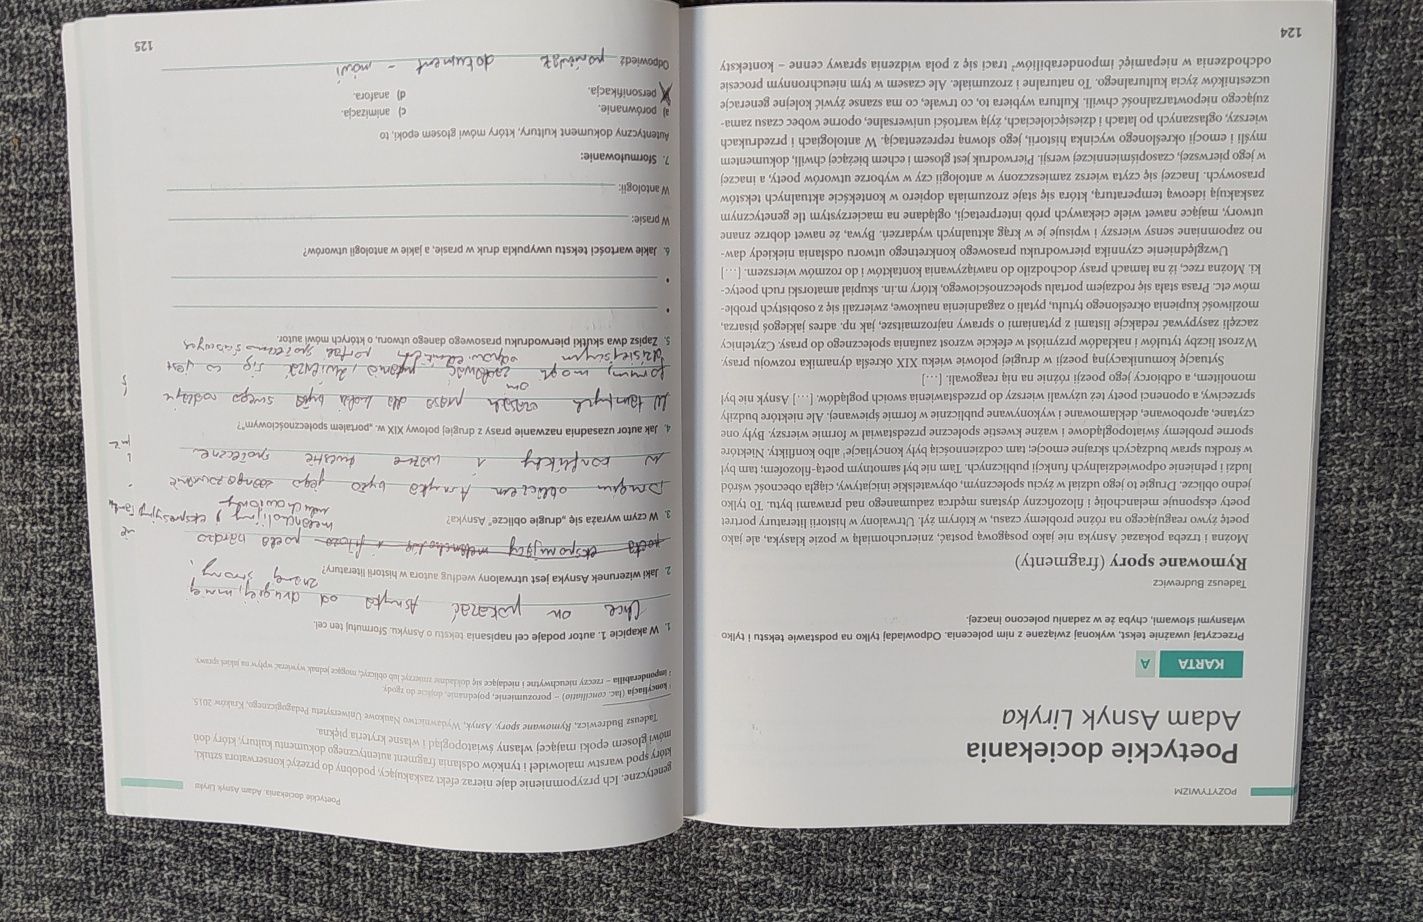 POZYTYWIZM
Poetyckie dociekania
Adam Asnyk Liryka
KARTA A
Przeczytaj uważnie tekst, wykonaj związane z nim polecenia. Odpowiadaj tylko na podstawie tekstu i tylko
własnymi słowami, chyba że w zadaniu polecono inaczej.
Tadeusz Budrewicz
Rymowane spory (fragmenty)
Można i trzeba pokazać Asnyka nie jako posągową postać, znieruchomiałą w pozie klasyka, ale jako
poetę żywo reagującego na różne problemy czasu, w którym żył. Utrwalony w historii literatury portret
poety eksponuje melancholię i filozoficzny dystans mędrca zadumanego nad prawami bytu. To tylko
jedno oblicze. Drugie to jego udział w życiu społecznym, obywatelskie inicjatywy, ciągła obecność wśród
ludzi i pełnienie odpowiedzialnych funkcji publicznych. Tam nie był samotnym poetą-filozofem; tam był
w środku spraw budzących skrajne emocje; tam codziennością były koncyliacje¹, albo konflikty. Niektóre
sporne problemy światopoglądowe i ważne kwestie społeczne przedstawiał w formie wierszy. Były one
czytane, aprobowane, deklamowane i wykonywane publicznie w formie śpiewanej. Ale niektóre budziły
sprzeciwy, a oponenci poety też używali wierszy do przedstawienia swoich poglądów. […] Asnyk nie był
monolitem, a odbiorcy jego poezji różnie na nią reagowali. […]
Sytuację komunikacyjną poezji w drugiej połowie wieku XIX określa dynamika rozwoju prasy.
Wzrost liczby tytułów i nakładów przyniósł w efekcie wzrost zaufania społecznego do prasy. Czytelnicy
zaczęli zasypywać redakcje listami z pytaniami o sprawy najrozmaitsze, jak np. adres jakiegoś pisarza,
możliwość kupienia określonego tytułu, pytali o zagadnienia naukowe, zwierzali się z osobistych proble-
mów etc. Prasa stała się rodzajem portalu społecznościowego, który m.in. skupiał amatorski ruch poetyc-
ki. Można rzec, iż na łamach prasy dochodziło do nawiązywania kontaktów i do rozmów wierszem. […]
Uwzględnienie czynnika pierwodruku prasowego konkretnego utworu odsłania niekiedy daw-
no zapomniane sensy wierszy i wpisuje je w krąg aktualnych wydarzeń. Bywa, że nawet dobrze znane
utwory, mające nawet wiele ciekawych prób interpretacji, oglądane na macierzystym tle genetycznym
zaskakują ideową temperaturą, która się staje zrozumiała dopiero w kontekście aktualnych tekstów
prasowych. Inaczej się czyta wiersz zamieszczony w antologii czy w wyborze utworów poety, a inaczej
w jego pierwszej, czasopiśmienniczej wersji. Pierwodruk jest głosem i echem bieżącej chwili, dokumentem
myśli i emocji określonego wycinka historii, jego słowną reprezentacją. W antologiach i przedrukach
wierszy, ogłaszanych po latach i dziesięcioleciach, żyją wartości uniwersalne, oporne wobec czasu zama-
zującego niepowtarzalność chwili. Kultura wybiera to, co trwałe, co ma szanse żywić kolejne generacje
uczestników życia kulturalnego. To naturalne i zrozumiałe. Ale czasem w tym nieuchronnym procesie
odchodzenia w niepamięć imponderabiliów² traci się z pola widzenia sprawy cenne – konteksty
124
Poetyckie dociekania. Adam Asnyk Liryka
genetyczne. Ich przypomnienie daje nieraz efekt zaskakujący, podobny do przeżyć konserwatora sztuki,
który spod warstw malowideł i tynków odsłania fragment autentycznego dokumentu kultury, który doń
mówi głosem epoki mającej własny światopogląd i własne kryteria piękna.
Tadeusz Budrewicz, Rymowane spory. Asnyk, Wydawnictwo Naukowe Uniwersytetu Pedagogicznego, Kraków 2015.
¹ koncyliacja (łac. conciliatio) – porozumienie, pojednanie, dojście do zgody
² imponderabilia – rzeczy nieuchwytne i niedające się dokładnie zmierzyć lub obliczyć, mogące jednak wywierać wpływ na jakieś sprawy.
1. W akapicie 1. autor podaje cel napisania tekstu o Asnyku. Sformułuj ten cel.
Chce on pokazać Asnyka od drugiej, innej
strony.
2. Jaki wizerunek Asnyka jest utrwalony według autora w historii literatury?
poeta eksponujący poeta bardzo
melancholijny,
3. W czym wyraża się „drugie oblicze” Asnyka?
Drugim obliczem Asnyka było jego zaangażowanie
w konflikty i ważne kwestie społeczne
4. Jak autor uzasadnia nazwanie prasy z drugiej połowy XIX w. „portalem społecznościowym”?
W tamtych czasach prasa dla ludzi była swego rodzaju
forum, mogli zadawać pytania, zwierzać się w jest
dzisiejszym portal społecznościowy
5. Zapisz dwa skutki pierwodruku prasowego danego utworu, o których mówi autor.
•
•
6. Jakie wartości tekstu uwypukla druk w prasie, a jakie w antologii utworów?
W prasie:
W antologii:
7. Sformułowanie:
Autentyczny dokument kultury, który mówi głosem epoki, to
a) porównanie. c) animizacja.
personifikacja. d) anafora.
Odpowiedź ponieważ dokument – mówi
125